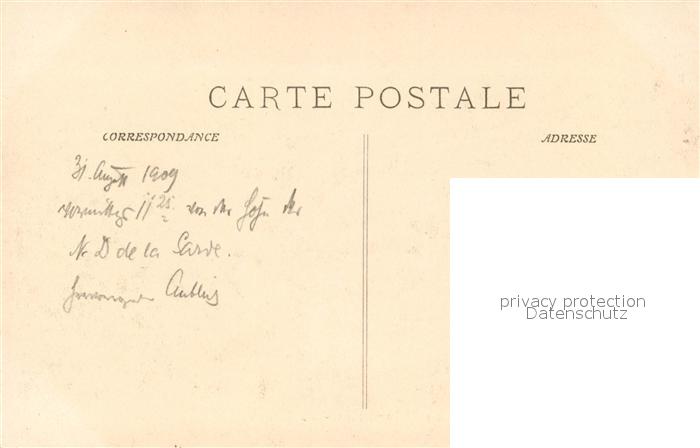 CARTE POSTALE
CORRESPONDANCE
ADRESSE
31. August 1909
vormittags 11 25. von der Höhe der
N. D de la Garde.
Anblick
privacy protection
Datenschutz